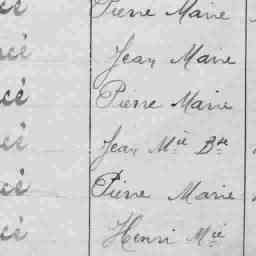 cé Pierre Marie
cé Jean Marie
cé Pierre Marie
cé Jean Mie Bte
cé Pierre Marie
cé Henri Mie